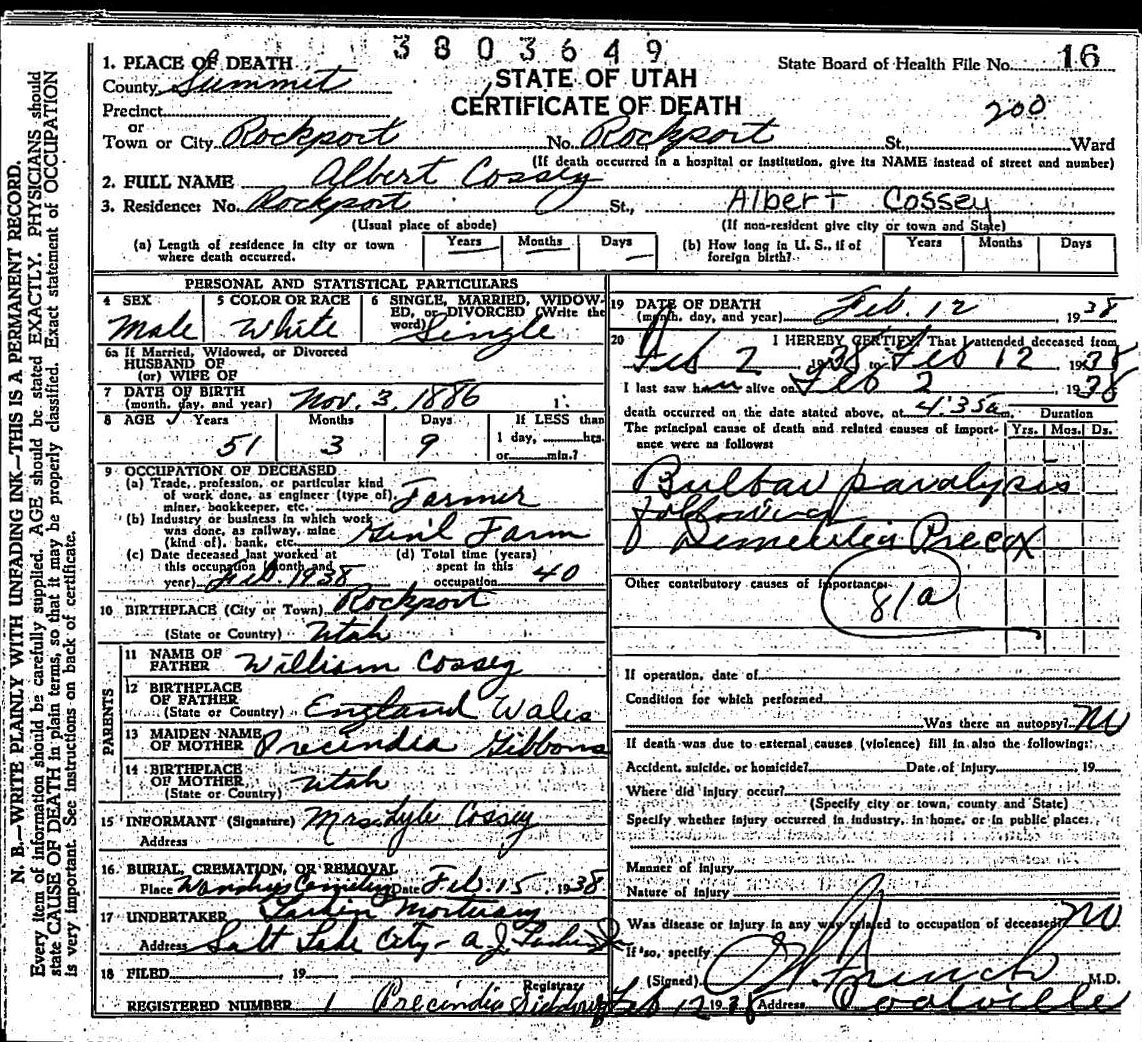 3803649
State Board of Health File No. 16
1. PLACE OF DEATH
STATE OF UTAH
County Summit
CERTIFICATE OF DEATH
Precinct
200
or
Town or City Rockport No. Rockport St., Ward
(If death occurred in a hospital or institution, give its NAME instead of street and number)
2. FULL NAME Albert Cossey
3. Residence: No. Rockport St., Albert Cossey
(Usual place of abode) (If non-resident give city or town and State)
(a) Length of residence in city or town where death occurred. Years Months Days
(b) How long in U. S., if of foreign birth? Years Months Days
PERSONAL AND STATISTICAL PARTICULARS
4 SEX Male
5 COLOR OR RACE White
6 SINGLE, MARRIED, WIDOWED, or DIVORCED (Write the word) Single
6a If Married, Widowed, or Divorced
HUSBAND OF
(or) WIFE OF
7 DATE OF BIRTH
(month, day, and year) Nov. 3, 1886
8 AGE Years Months Days If LESS than
51 3 9 1 day, hrs.
or min.?
9 OCCUPATION OF DECEASED
(a) Trade, profession, or particular kind
of work done, as engineer (type of),
miner, bookkeeper, etc. Farmer
(b) Industry or business in which work
was done, as railway, mine
(kind of), bank, etc. Genl Farm
(c) Date deceased last worked at
this occupation (month and
year) Feb. 1938
(d) Total time (years)
spent in this
occupation 40
10 BIRTHPLACE (City or Town) Rockport
(State or Country) Utah
PARENTS
11 NAME OF
FATHER William Cossey
12 BIRTHPLACE
OF FATHER
(State or Country) England Wales
13 MAIDEN NAME
OF MOTHER Precindea Gibbons
14 BIRTHPLACE
OF MOTHER
(State or Country) Utah
15 INFORMANT (Signature) Mrs. Lyle Cossey
Address
16 BURIAL, CREMATION, OR REMOVAL
Place Cemetery Date Feb 15 1938
17 UNDERTAKER Larkin Mortuary
Address Salt Lake City - A. J.
18 FILED , 19
Registrar
REGISTERED NUMBER 1 Precindia
19 DATE OF DEATH
(month, day, and year) Feb. 12 1938
20 I HEREBY CERTIFY, That I attended deceased from
Feb 2, 1938 to Feb 12, 1938
I last saw him alive on Feb 2 1938
death occurred on the date stated above, at 4:35a m. Duration
The principal cause of death and related causes of importance were as follows: Yrs. Mos. Ds.
Bulbar paralysis
following
Dementia Precox
Other contributory causes of importance:
81a
If operation, date of
Condition for which performed
Was there an autopsy? No
If death was due to external causes (violence) fill in also the following:
Accident, suicide, or homicide? Date of injury , 19
Where did injury occur?
(Specify city or town, county and State)
Specify whether injury occurred in industry, in home, or in public place:
Manner of injury
Nature of injury
Was disease or injury in any way related to occupation of deceased? No
If so, specify
(Signed) French M.D.
Feb 12 1938 Address Coalville
N. B.—WRITE PLAINLY WITH UNFADING INK—THIS IS A PERMANENT RECORD.
Every item of information should be carefully supplied. AGE should be stated EXACTLY. PHYSICIANS should
state CAUSE OF DEATH in plain terms, so that it may be properly classified. Exact statement of OCCUPATION
is very important. See instructions on back of certificate.